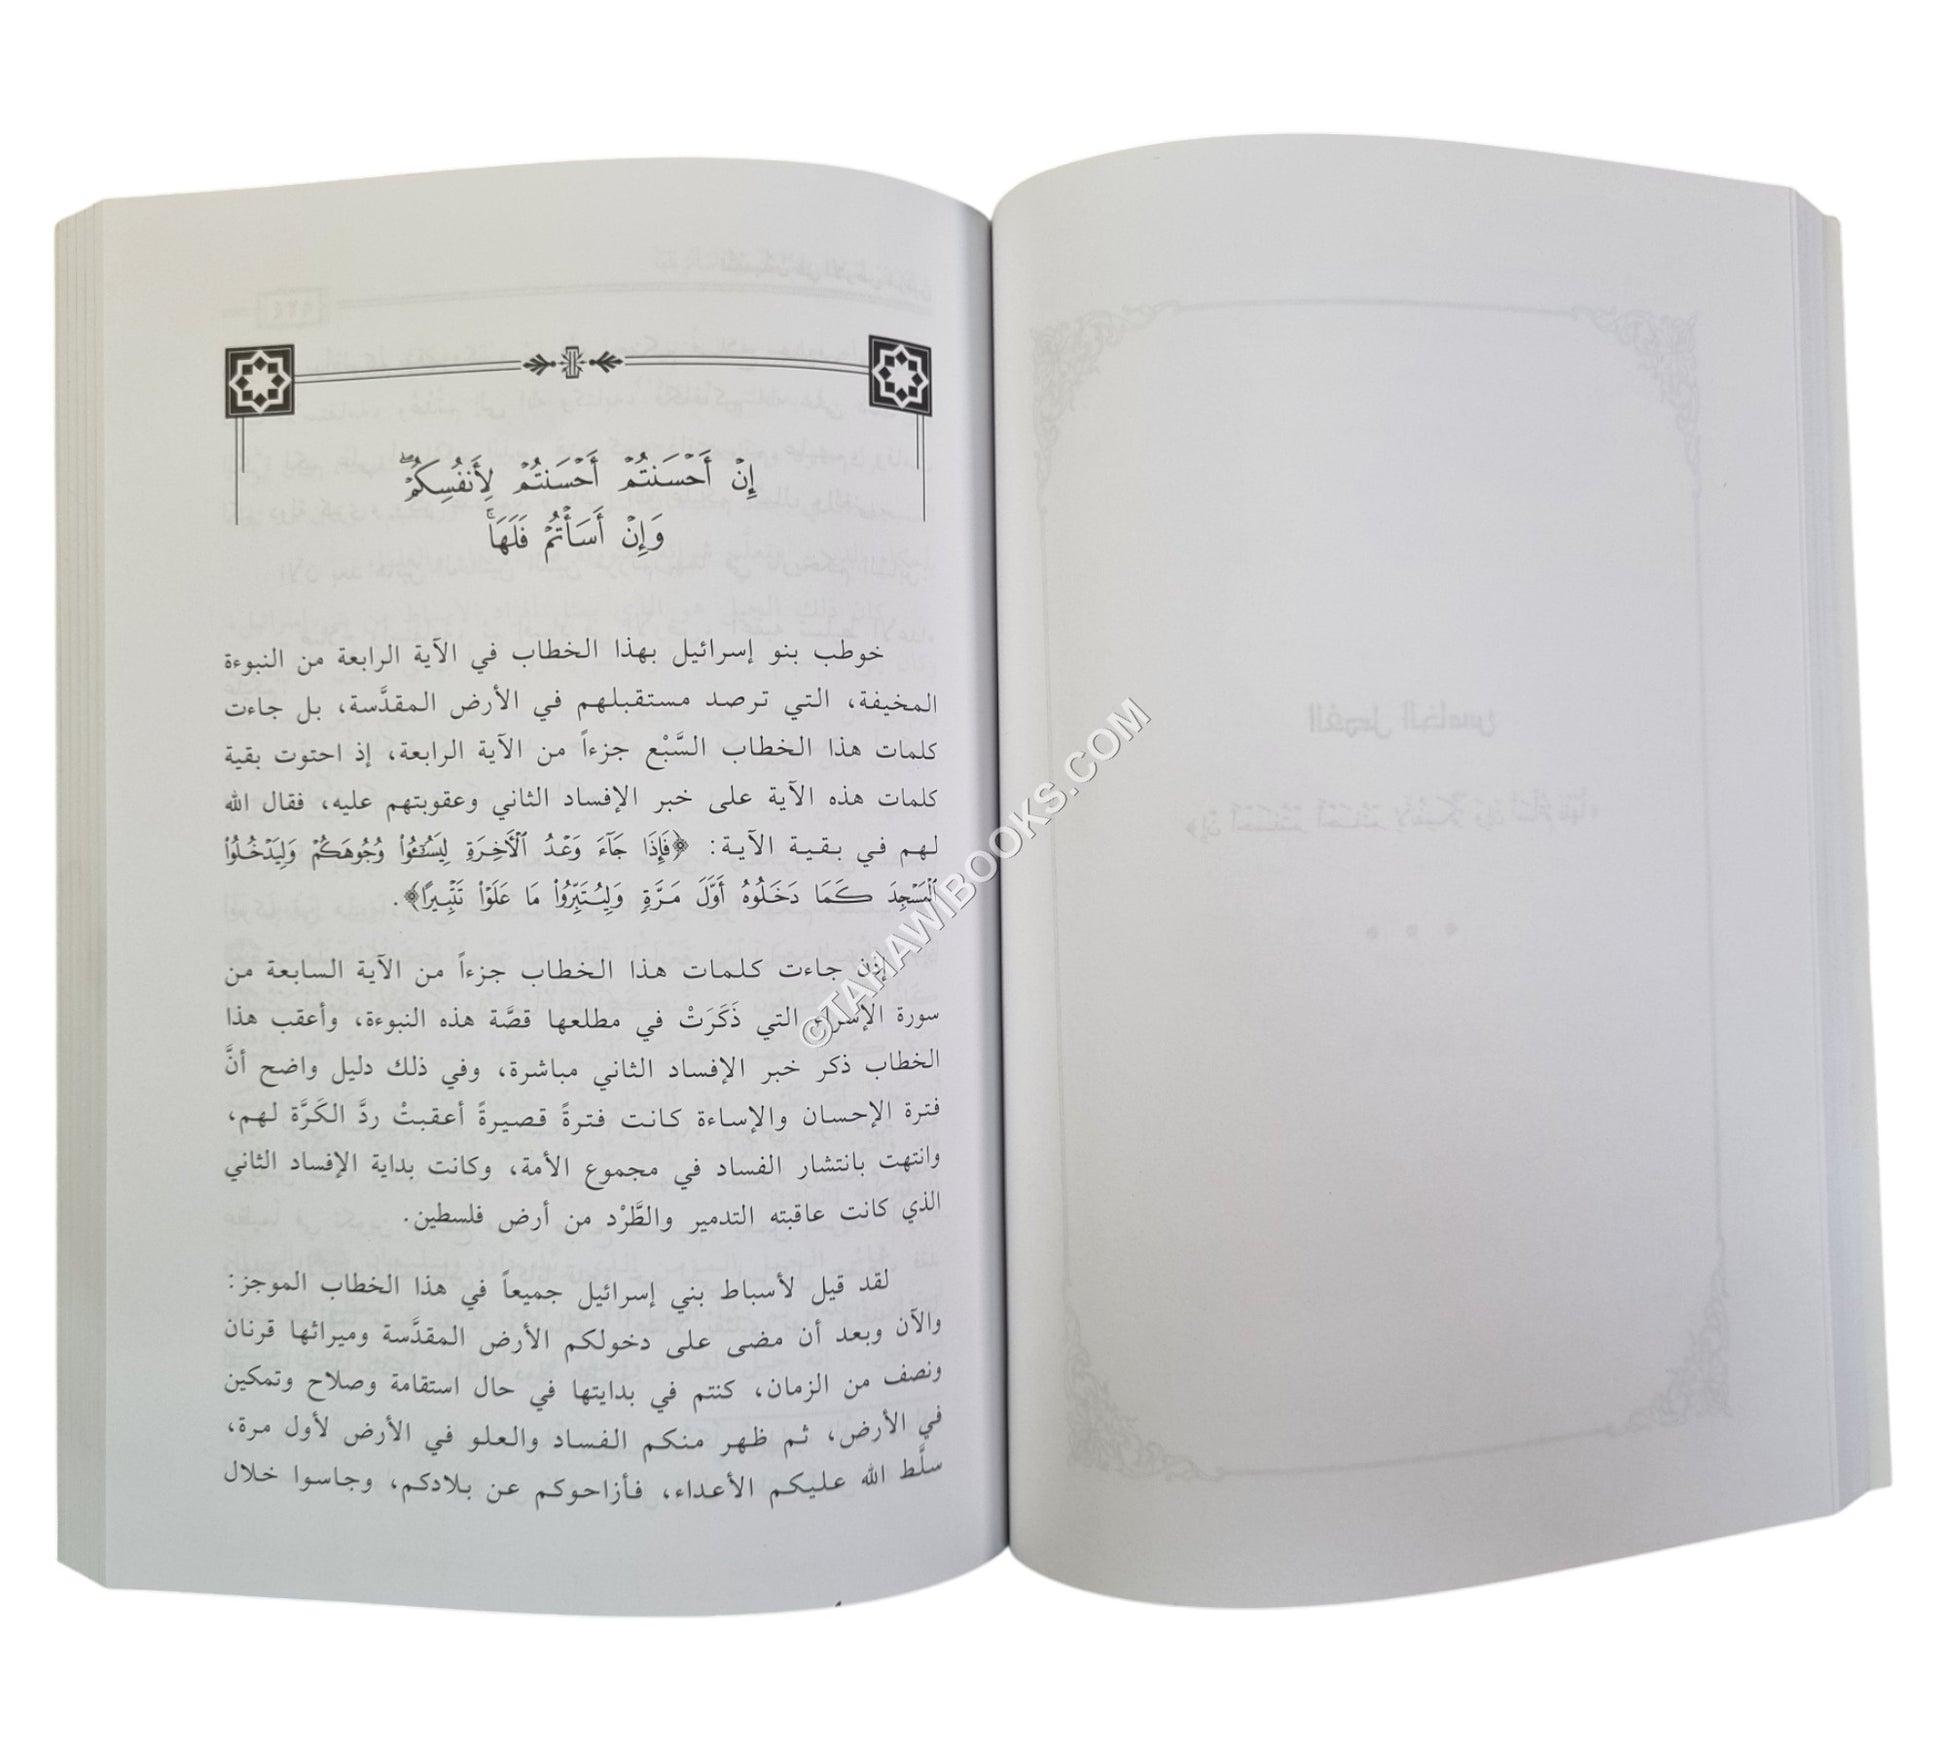 إِنْ أَحْسَنتُمْ أَحْسَنتُمْ لِأَنفُسِكُمْ ۖ
وَإِنْ أَسَأْتُمْ فَلَهَا ۚ
خوطب بنو إسرائيل بهذا الخطاب في الآية الرابعة من النبوءة
المخيفة، التي ترصد مستقبلهم في الأرض المقدَّسة، بل جاءت
كلمات هذا الخطاب السَّبْع جزءاً من الآية الرابعة، إذ احتوت بقية
كلمات هذه الآية على خبر الإفساد الثاني وعقوبتهم عليه، فقال الله
لهم في بقية الآية: ﴿فَإِذَا جَآءَ وَعْدُ ٱلْأَخِرَةِ لِيَسُۥٓـُٔوا۟ وُجُوهَكُمْ وَلِيَدْخُلُوا۟
ٱلْمَسْجِدَ كَمَا دَخَلُوهُ أَوَّلَ مَرَّةٍ وَلِيُتَبِّرُوا۟ مَا عَلَوْا۟ تَتْبِيرًا﴾.
إذن جاءت كلمات هذا الخطاب جزءاً من الآية السابعة من
سورة الإسراء التي ذَكَرَتْ في مطلعها قصَّة هذه النبوءة، وأعقب هذا
الخطاب ذكر خبر الإفساد الثاني مباشرة، وفي ذلك دليل واضح أنَّ
فترة الإحسان والإساءة كانت فترةً قصيرةً أعقبتْ ردَّ الكَرَّة لهم،
وانتهت بانتشار الفساد في مجموع الأمة، وكانت بداية الإفساد الثاني
الذي كانت عاقبته التدمير والطَّرْد من أرض فلسطين.
لقد قيل لأسباط بني إسرائيل جميعاً في هذا الخطاب الموجز:
والآن وبعد أن مضى على دخولكم الأرض المقدَّسة وميراثها قرنان
ونصف من الزمان، كنتم في بدايتها في حال استقامة وصلاح وتمكين
في الأرض، ثم ظهر منكم الفساد والعلو في الأرض لأول مرة،
سلَّط الله عليكم الأعداء، فأزاحوكم عن بلادكم، وجاسوا خلال
©TAHAWIBOOKS.COM
الفصل الخامس